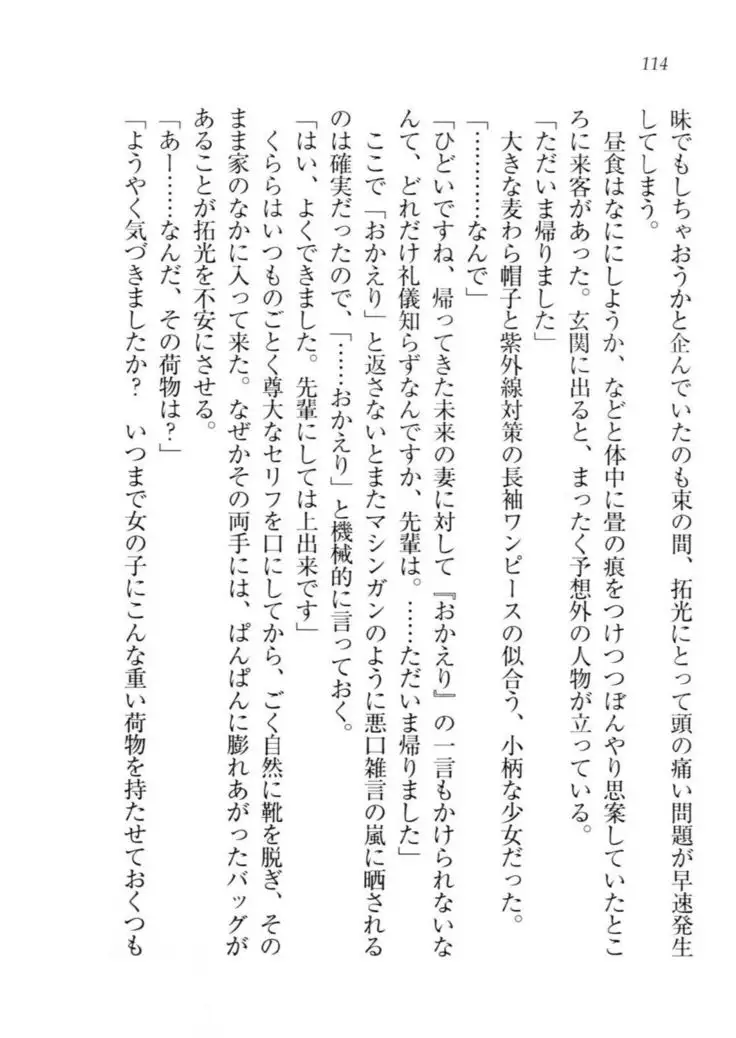 114
昧でもしちゃおうかと企んでいたのも束の間、拓光にとって頭の痛い問題が早速発生
してしまう。
昼食はなににしようか、などと体中に畳の痕をつけつつぼんやり思案していたとこ
ろに来客があった。玄関に出ると、まったく予想外の人物が立っている。
「ただいま帰りました」
大きな麦わら帽子と紫外線対策の長袖ワンピースの似合う、小柄な少女だった。
「…………なんで」
「ひどいですね、帰ってきた未来の妻に対して『おかえり』の一言もかけられないな
んて、どれだけ礼儀知らずなんですか、先輩は。……ただいま帰りました」
ここで「おかえり」と返さないとまたマシンガンのように悪口雑言の嵐に晒される
のは確実だったので、「……おかえり」と機械的に言っておく。
「はい、よくできました。先輩にしては上出来です」
くららはいつものごとく尊大なセリフを口にしてから、ごく自然に靴を脱ぎ、その
まま家のなかに入って来た。なぜかその両手には、ぱんぱんに膨れあがったバッグが
あることが拓光を不安にさせる。
「あー……なんだ、その荷物は?」
「ようやく気づきましたか?　いつまで女の子にこんな重い荷物を持たせておくつも